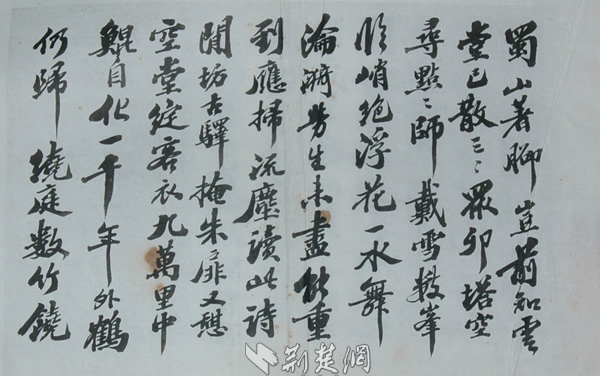 蜀山著脚豈前知雲
堂已散三〻眾卯塔空
尋點〻師戴雪數峯
臨峭絕浮花一水舞
淪漪勞生未盡能重
到應掃流塵讀此詩
閒坊古驛掩朱扉又憩
空堂綻客衣九萬里中
鯤自化一千年外鶴
仍歸繞庭數竹饒
荆楚網